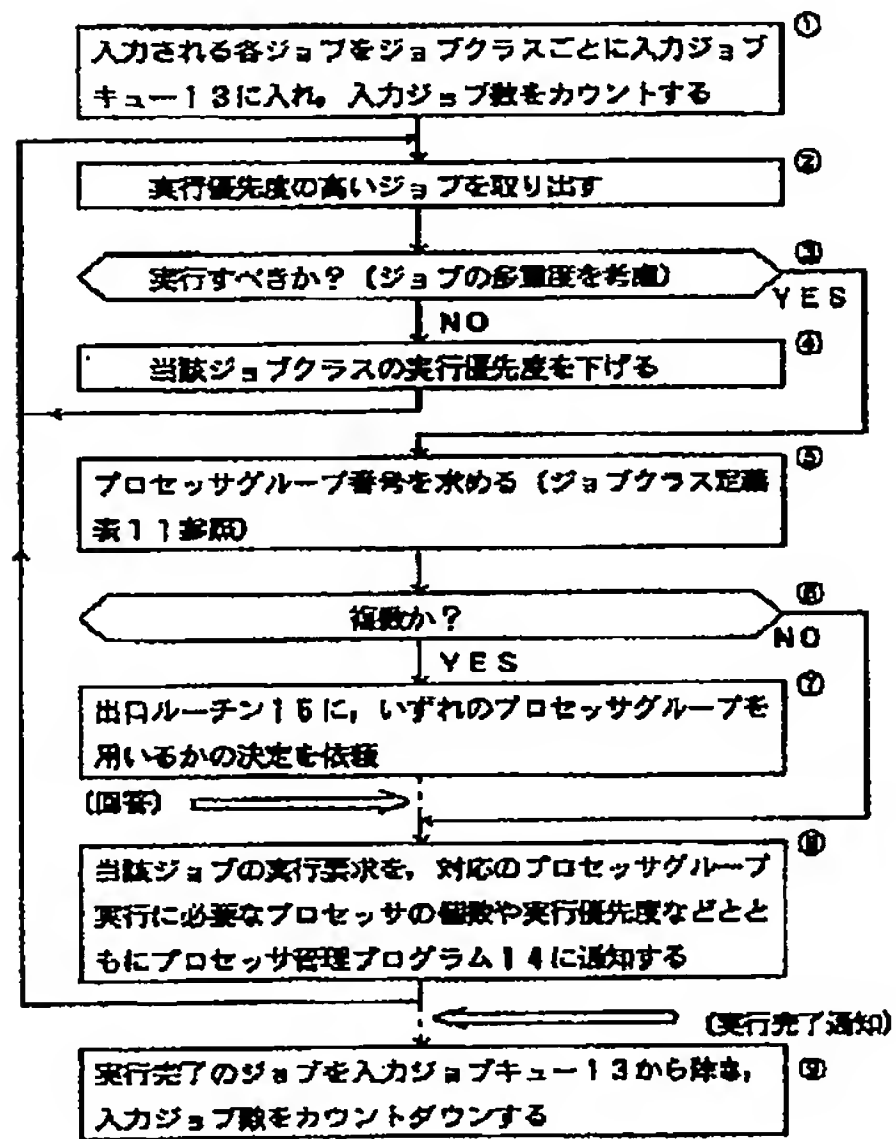 ①
入力される各ジョブをジョブクラスごとに入力ジョブ
キュー13に入れ，入力ジョブ数をカウントする
②
実行優先度の高いジョブを取り出す
③
実行すべきか？（ジョブの多重度を考慮）
YES
NO
④
当該ジョブクラスの実行優先度を下げる
⑤
プロセッサグループ番号を求める（ジョブクラス定義
表11参照）
⑥
複数か？
NO
YES
⑦
出口ルーチン15に，いずれのプロセッサグループを
用いるかの決定を依頼
（回答）
⑧
当該ジョブの実行要求を，対応のプロセッサグループ
実行に必要なプロセッサの個数や実行優先度などとと
もにプロセッサ管理プログラム14に通知する
（実行完了通知）
⑨
実行完了のジョブを入力ジョブキュー13から除き，
入力ジョブ数をカウントダウンする